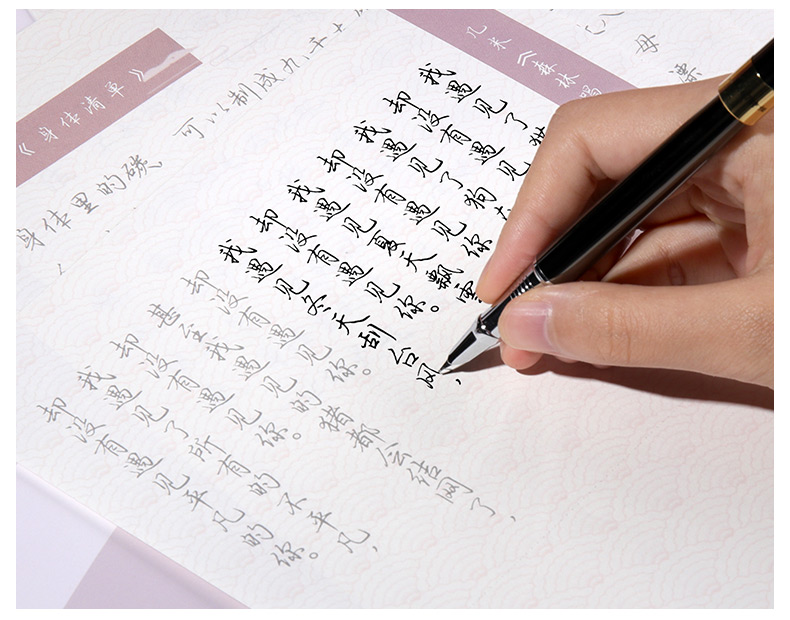 几米《森林唱
我遇见了猫
却没有遇见
我遇见了狗在
却没有遇见你
我遇见夏天飘雪
却没有遇见你。
我遇见冬天刮台风,
却没有遇见你。
甚至我遇见的猪都会结网了,
却没有遇见你。
我遇见了所有的不平凡,
却没有遇见平凡的你。
《身体清单》
身体里的碳,可以制成九千
母
漂